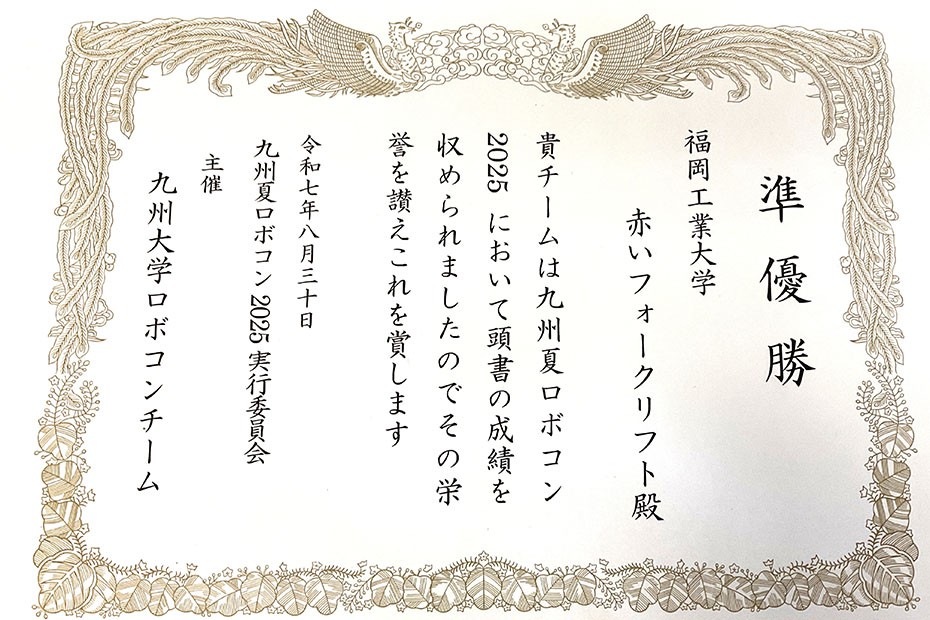 準優勝
福岡工業大学
赤いフォークリフト殿
貴チームは九州夏ロボコン
2025 において頭書の成績を
収められましたのでその栄
誉を讃えこれを賞します
令和七年八月三十日
九州夏ロボコン 2025 実行委員会
主催
九州大学ロボコンチーム